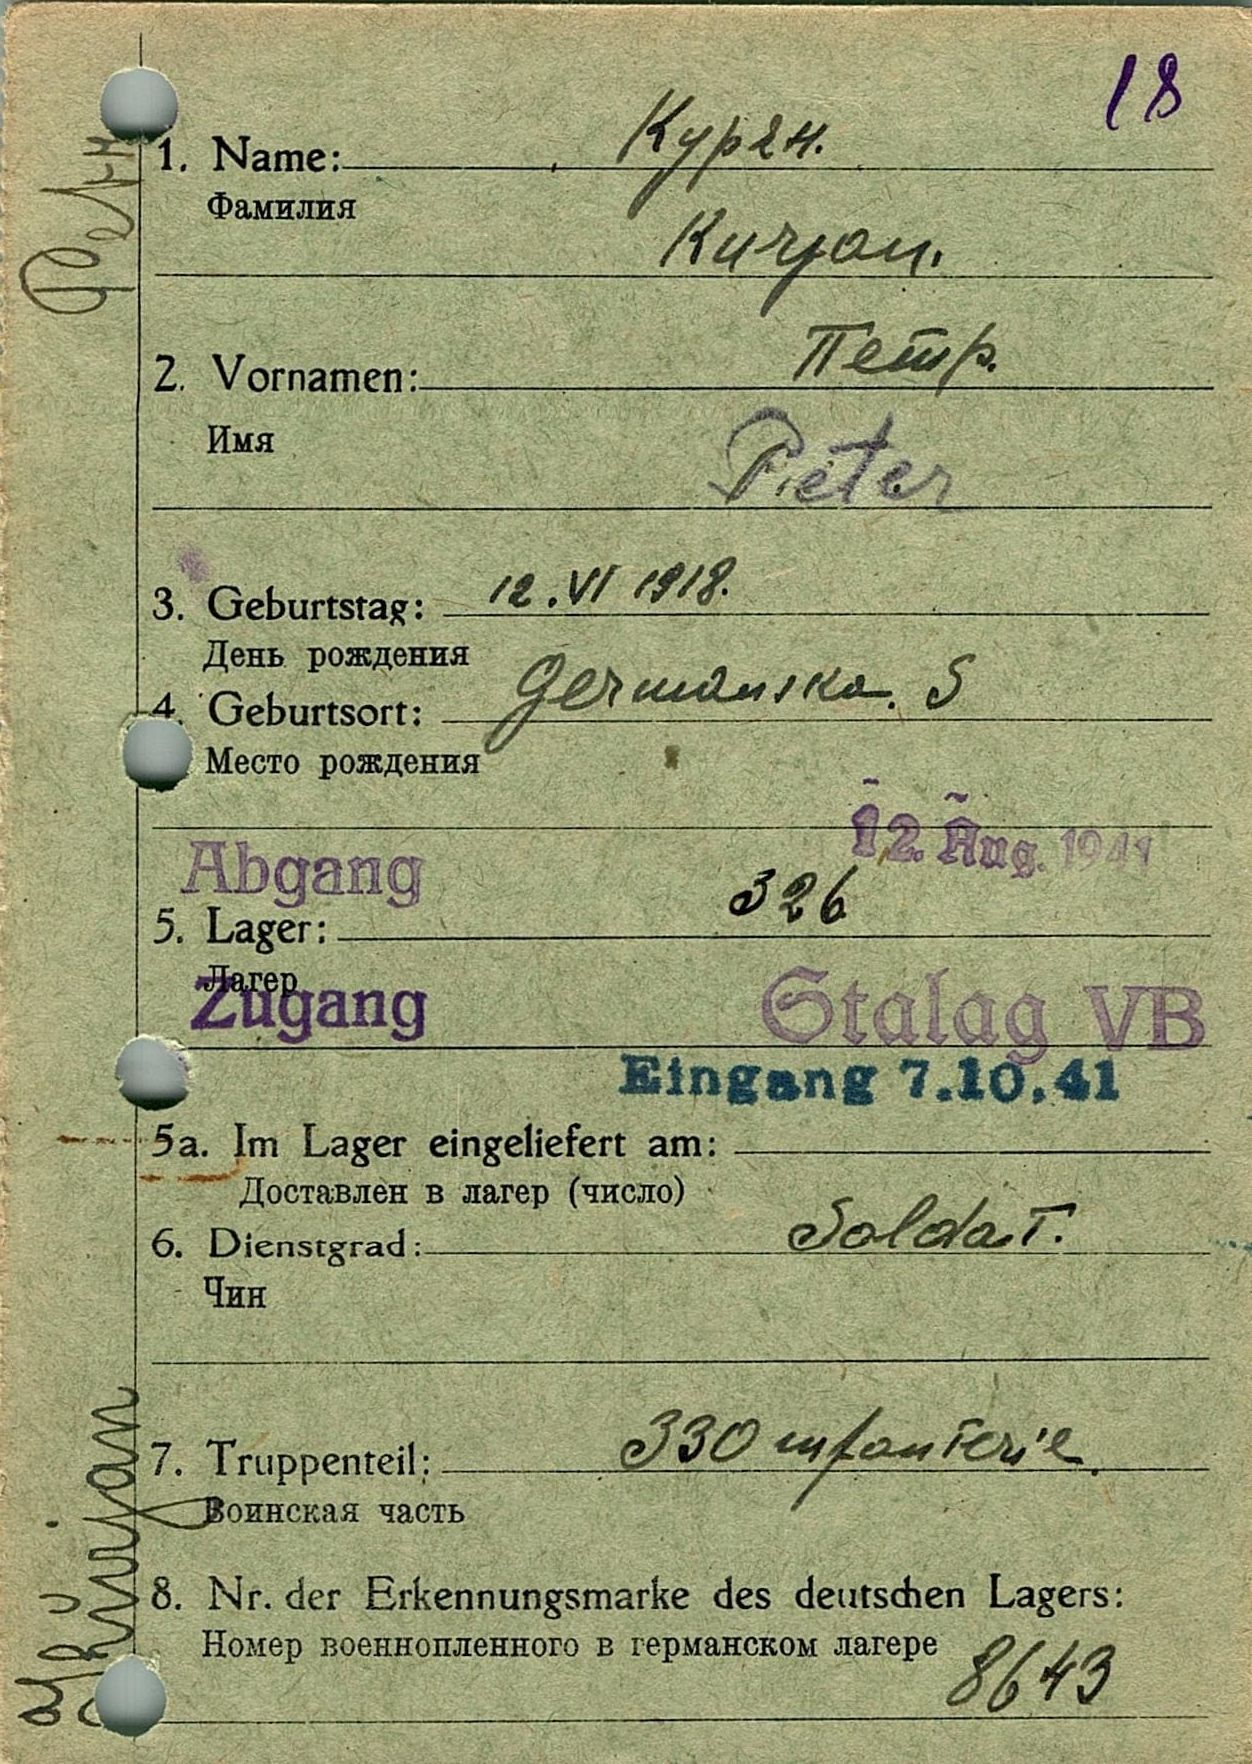 18
1. Name: Курян.
Фамилия
Kurjan.
2. Vornamen: Петр.
Имя
Peter
3. Geburtstag: 12. VI 1918.
День рождения
4. Geburtsort: Germanska. S
Место рождения
12. Aug. 1941
Abgang
5. Lager: 326
Лагер
Zugang Stalag VB
Eingang 7.10.41
5a. Im Lager eingeliefert am:
Доставлен в лагер (число)
6. Dienstgrad: Soldat.
Чин
7. Truppenteil: 330 infanterie.
Воинская часть
8. Nr. der Erkennungsmarke des deutschen Lagers:
Номер военнопленного в германском лагере
8643
Kurjan